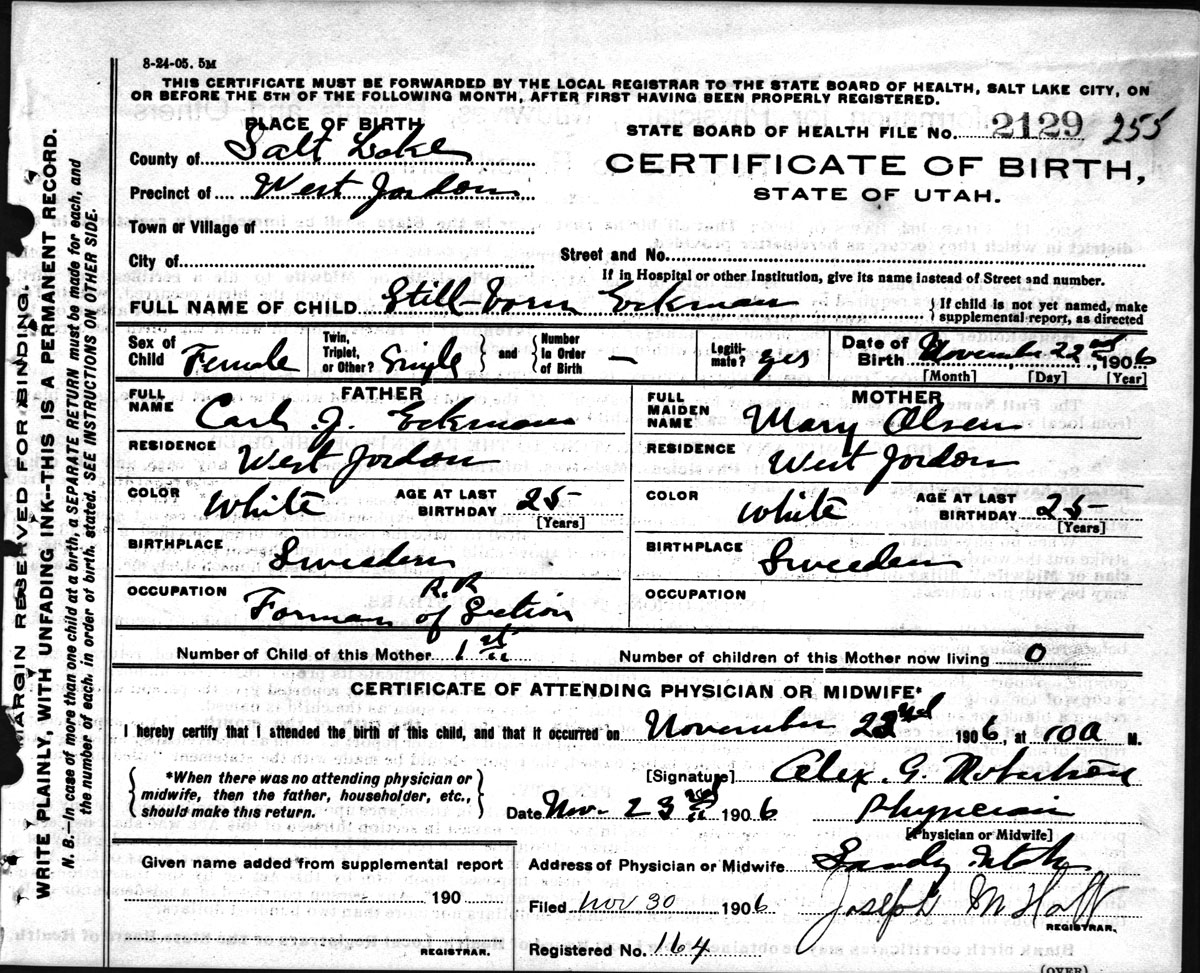 8-24-05. 5M
THIS CERTIFICATE MUST BE FORWARDED BY THE LOCAL REGISTRAR TO THE STATE BOARD OF HEALTH, SALT LAKE CITY, ON
OR BEFORE THE 5TH OF THE FOLLOWING MONTH, AFTER FIRST HAVING BEEN PROPERLY REGISTERED.
PLACE OF BIRTH
STATE BOARD OF HEALTH FILE No. 2129 255
County of Salt Lake
CERTIFICATE OF BIRTH,
Precinct of West Jordan
STATE OF UTAH.
Town or Village of
City of
Street and No.
If in Hospital or other Institution, give its name instead of Street and number.
FULL NAME OF CHILD Still-born Eckman
{ If child is not yet named, make supplemental report, as directed
Sex of Child Female
Twin, Triplet, or Other? Single } and { Number in Order of Birth —
Legitimate? yes
Date of Birth November 22nd, 1906
[Month] [Day] [Year]
FATHER
FULL NAME Carl J. Eckman
RESIDENCE West Jordon
COLOR White AGE AT LAST BIRTHDAY 25
[Years]
BIRTHPLACE Sweeden
OCCUPATION R.R
Forman of Section
MOTHER
FULL MAIDEN NAME Mary Olsen
RESIDENCE West Jordon
COLOR White AGE AT LAST BIRTHDAY 25
[Years]
BIRTHPLACE Sweeden
OCCUPATION
Number of Child of this Mother 1st Number of children of this Mother now living 0
CERTIFICATE OF ATTENDING PHYSICIAN OR MIDWIFE*
I hereby certify that I attended the birth of this child, and that it occurred on November 22nd 1906, at 10a M.
{ *When there was no attending physician or midwife, then the father, householder, etc., should make this return. }
[Signature] Alex. G. Robertson
Date Nov- 23rd 1906 Physician
[Physician or Midwife]
Given name added from supplemental report
190
REGISTRAR.
Address of Physician or Midwife Sandy Utah
Filed Nov 30 1906 Joseph M Holt
REGISTRAR.
Registered No. 164
(OVER)
MARGIN RESERVED FOR BINDING.
WRITE PLAINLY, WITH UNFADING INK--THIS IS A PERMANENT RECORD.
N. B.—In case of more than one child at a birth, a SEPARATE RETURN must be made for each, and
the number of each, in order of birth, stated. SEE INSTRUCTIONS ON OTHER SIDE.